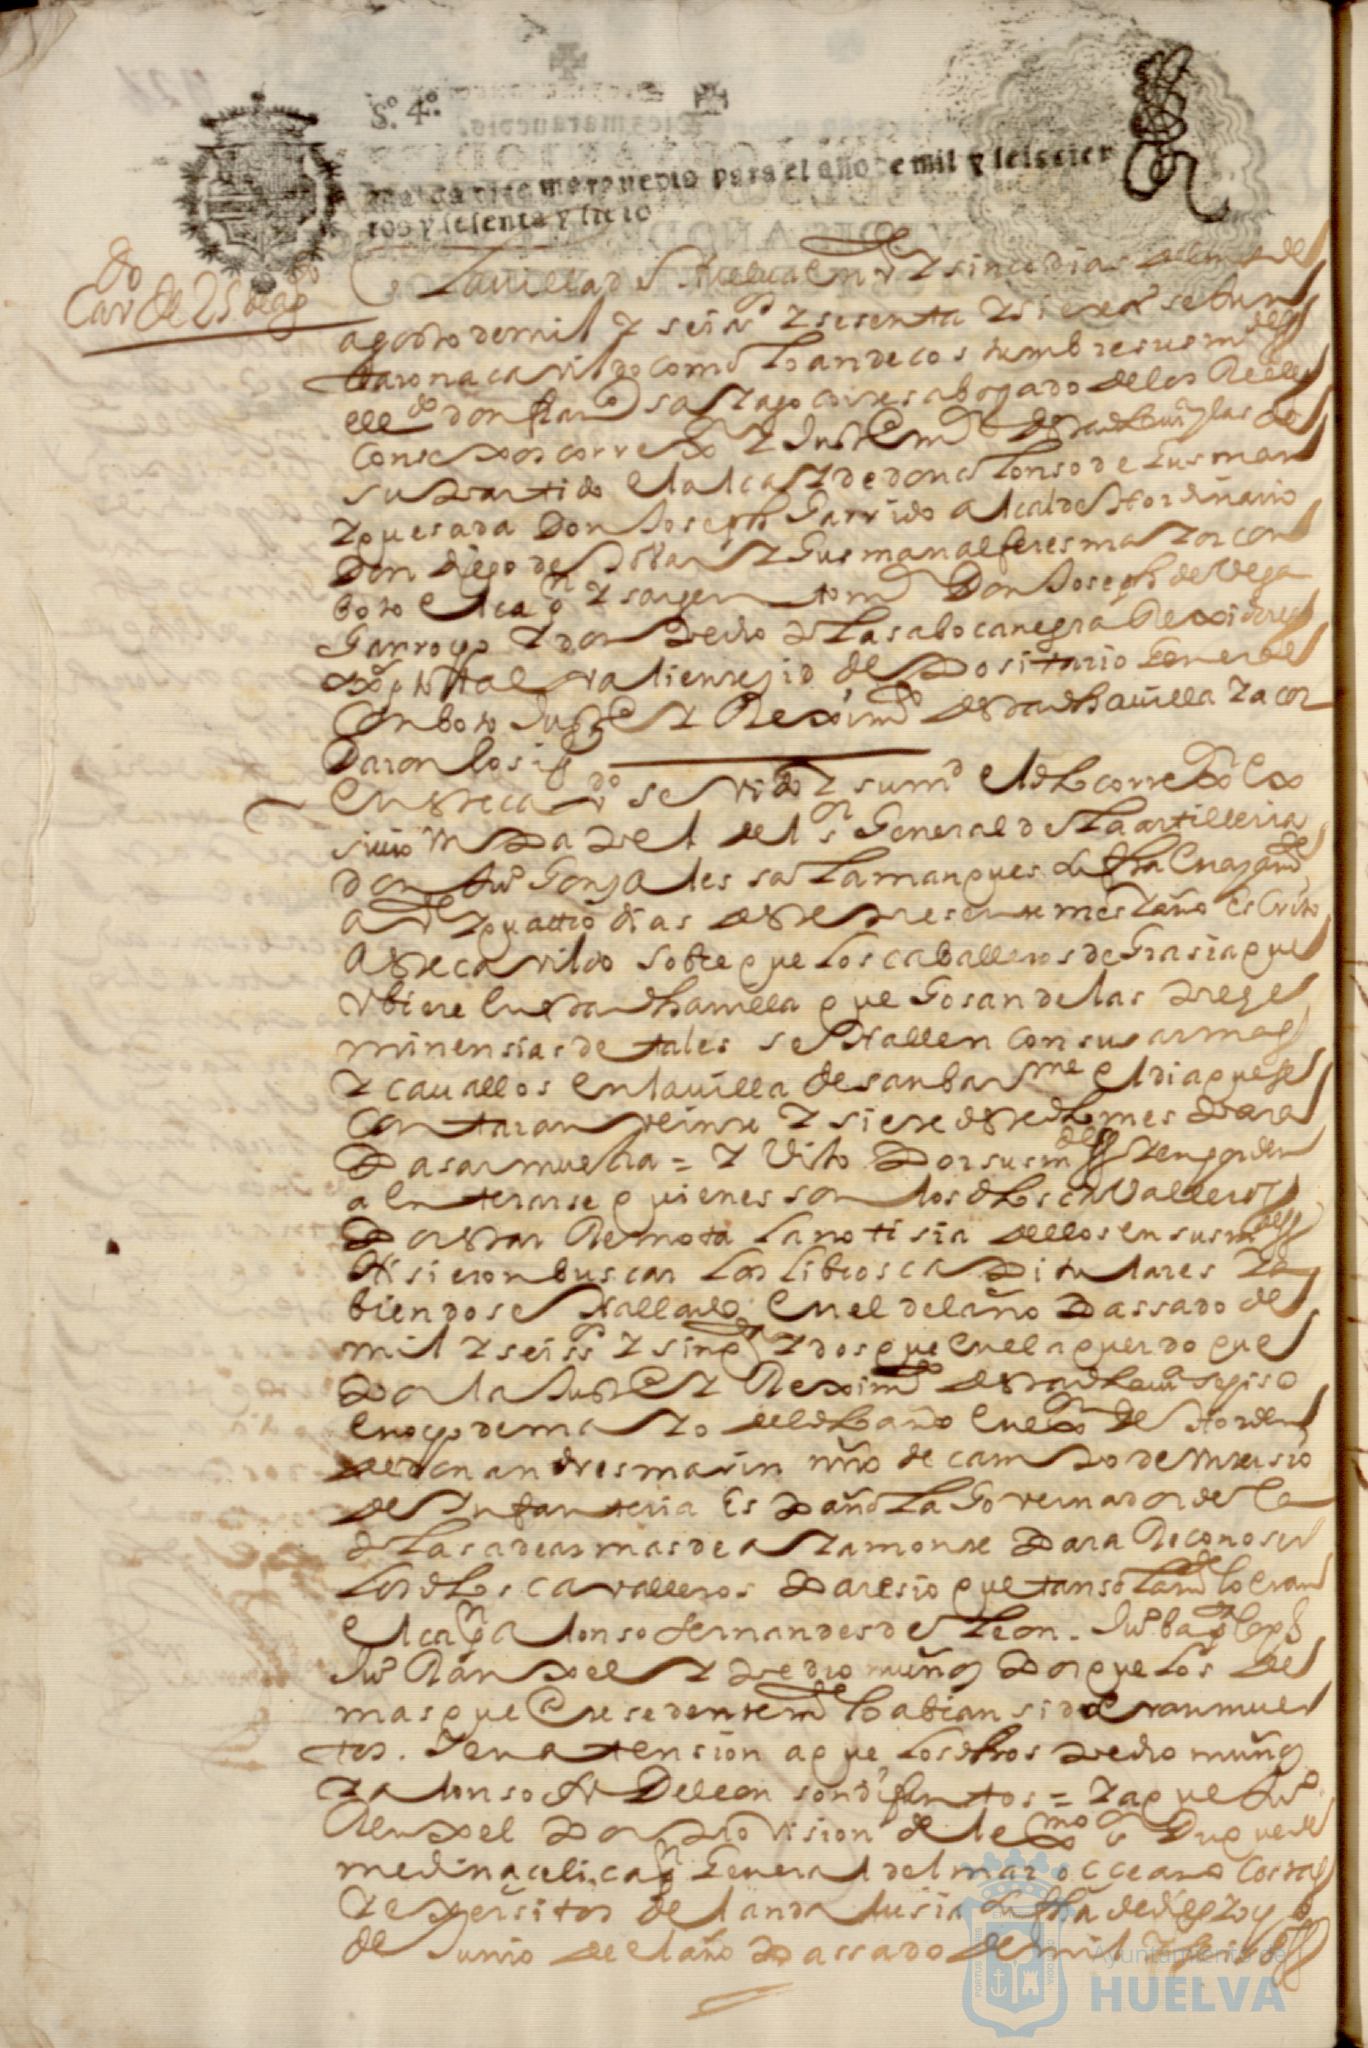 S.º 4.º
maravedis para el año de mil y seiscien
tos y sesenta y siete
Cavdº de 25 de agᵗᵒ
La villa de Huelva en vᵗᵉ y sinco dias del mes de
agosto de mil y seisᵒˢ y sesenta y siete aˢ se jun
taron a cavildo como lo an de costumbre sus mᵈᵉˢ
el lᵈᵒ don franᶜᵒ abogado de los Reales
Consexos correxᵒʳ y Justᵃ mʳ desta dha vᵃ y las de
su partido el alcayde don alonso de Gusman
y quesada Don Joseph Garrido alcalde hordinario
Don diego de y Gusman alferes mayor con
boto el capⁿ y sargento mʳ Don Joseph de Vega
Garrocho y don Pedro de la sa bocanegra Rexidores
valiente depositario General
Con boto Justᵃ y Reximᵗᵒ desta dha villa y acor
daron lo sigᵗᵉ
En este cavᵈᵒ se vido y su mᵈ el dho correxᵒʳ ex
sivio un papel del sʳ General de la artilleria
don Juº Gonzales salamanques su fha en ayamᵗᵉ
a vᵗᵉ y quatro dias deste presente mes y año escrito
a este cavildo sobre que los caballeros de Grasia que
ubiere en esta dha villa que Gosan de las prehe
minensias de tales se hallen con su armas
y cavallos en la villa de san barᵐᵉ el dia que se
Contaran veinte y siete deste dho mes para
pasar muestra = y visto por sus mᵈᵉˢ
a enterarse quienes son los dhos cavalleros
por estar Remota la notisia dellos en sus mᵈᵉˢ
hisieron buscar los libros capitulares y a
biendose hallado en el del año passado de
mil y seisˢ y sinqᵗᵃ y dos que en el aquerdo que
por la Justᵃ y Reximᵗᵒ desta dha villa se hiso
en ocho de mayo del dho año en exᵒⁿ de horden
de don andres marin mrº de campo de un tersio
de Infanteria Española Governador de la
plasa de armas de ayamonte para Reconoser
los dhos cavalleros paresio que tan solamᵗᵉ lo eran
el capⁿ alonso fernandes de Leon. Juº bapᵗᵃ
Juº Ranxel y pedro muños porque los de
mas que presedentemᵗᵉ lo abian sido eran muer
tos. Y en atension a que los dhos pedro muños
y alonso fr de leon son difuntos = y a que Juº
Renxel por provision del exᵐᵒ sʳ Duque de
medinaceli, capⁿ General del mar occeano costas
y exersitos del andalusia su fha de dies y ocho
de Junio del año passado de mil y seisˢ
Ayuntamiento de
HUELVA